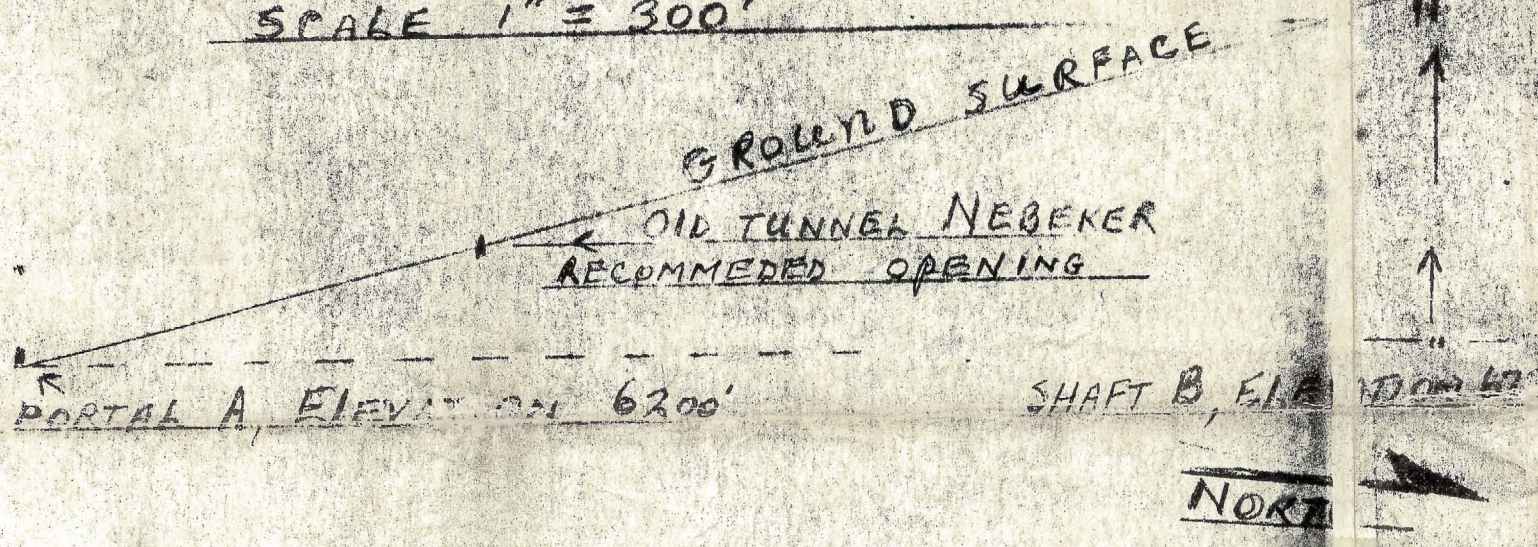 SCALE 1" = 300'
GROUND SURFACE
OLD TUNNEL NEBEKER
RECOMMEDED OPENING
PORTAL A, ELEVATION 6200'
SHAFT B,
NORT